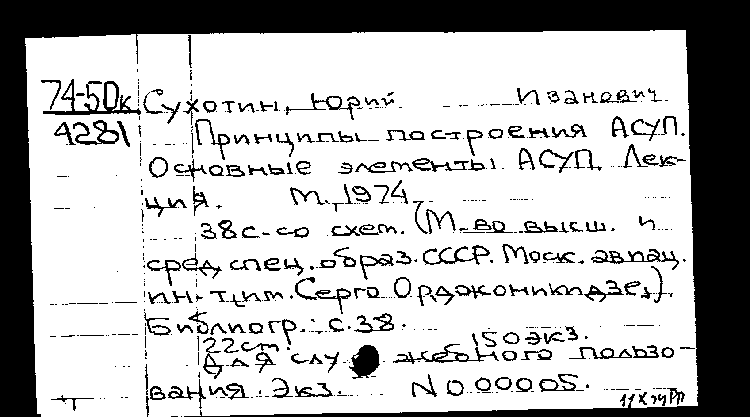 74-50к Сухотин, Юрий Иванович
4281 Принципы построения АСУП.
Основные элементы АСУП. Лек-
ция. М., 1974.
38с. со схем. (М-во высш. и
сред. спец. образ. СССР. Моск. авиац.
ин-т им. Серго Орджоникидзе).
Библиогр.: с. 38.
22см. 150экз.
Для служебного пользо-
вания. Экз. N 000005.